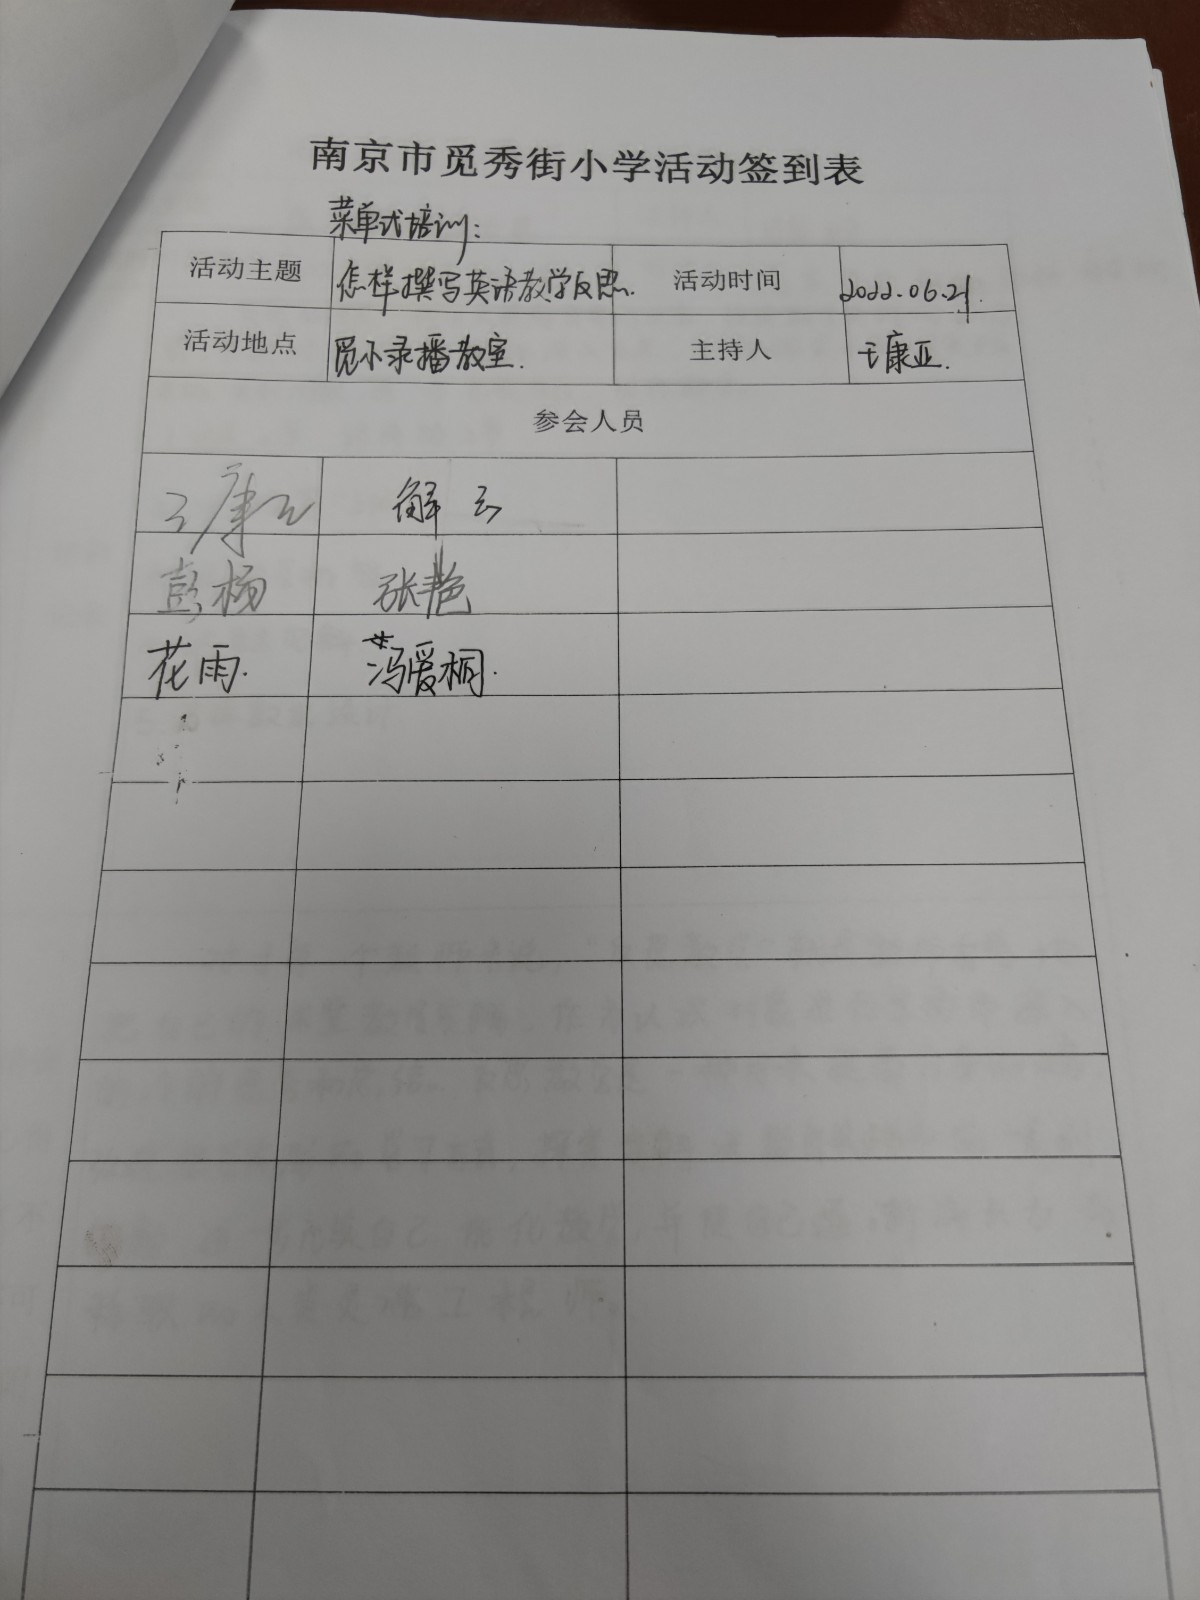 南京市觅秀街小学活动签到表
菜单式培训：
活动主题 怎样撰写英语教学反思. 活动时间 2022.06.21.
活动地点 觅小录播教室. 主持人 王康亚.
参会人员
王康亚 解云
彭杨 张艳
花雨. 冯爱桐.